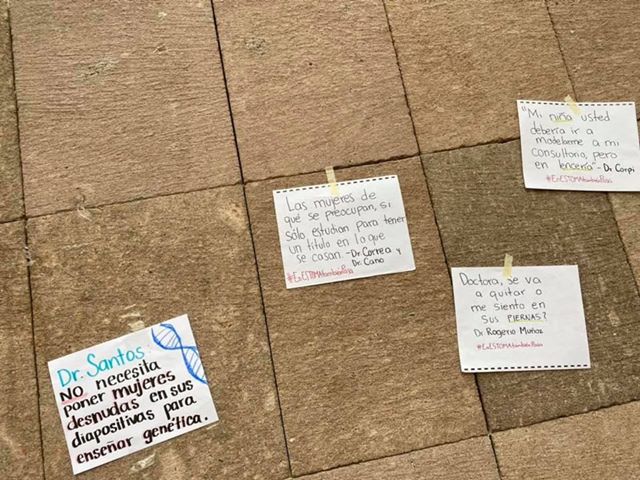 "Mi niña usted
debería ir a
modelarme a mi
consultorio, pero
en lencería" - Dr Carpi
#EnESTOMAtambiénPasa
Las mujeres de
qué se preocupan, si
sólo estudian para tener
un título en lo que
se casan. - Dr. Correa y
Dr. Cano
#EnESTOMAtambiénPasa
Doctora, se va
a quitar o
me siento en
sus PIERNAS?
Dr. Rogerio Muñoz
#EnESTOMAtambiénPasa
Dr. Santos:
NO necesita
poner mujeres
desnudas en sus
diapositivas para
enseñar genética.